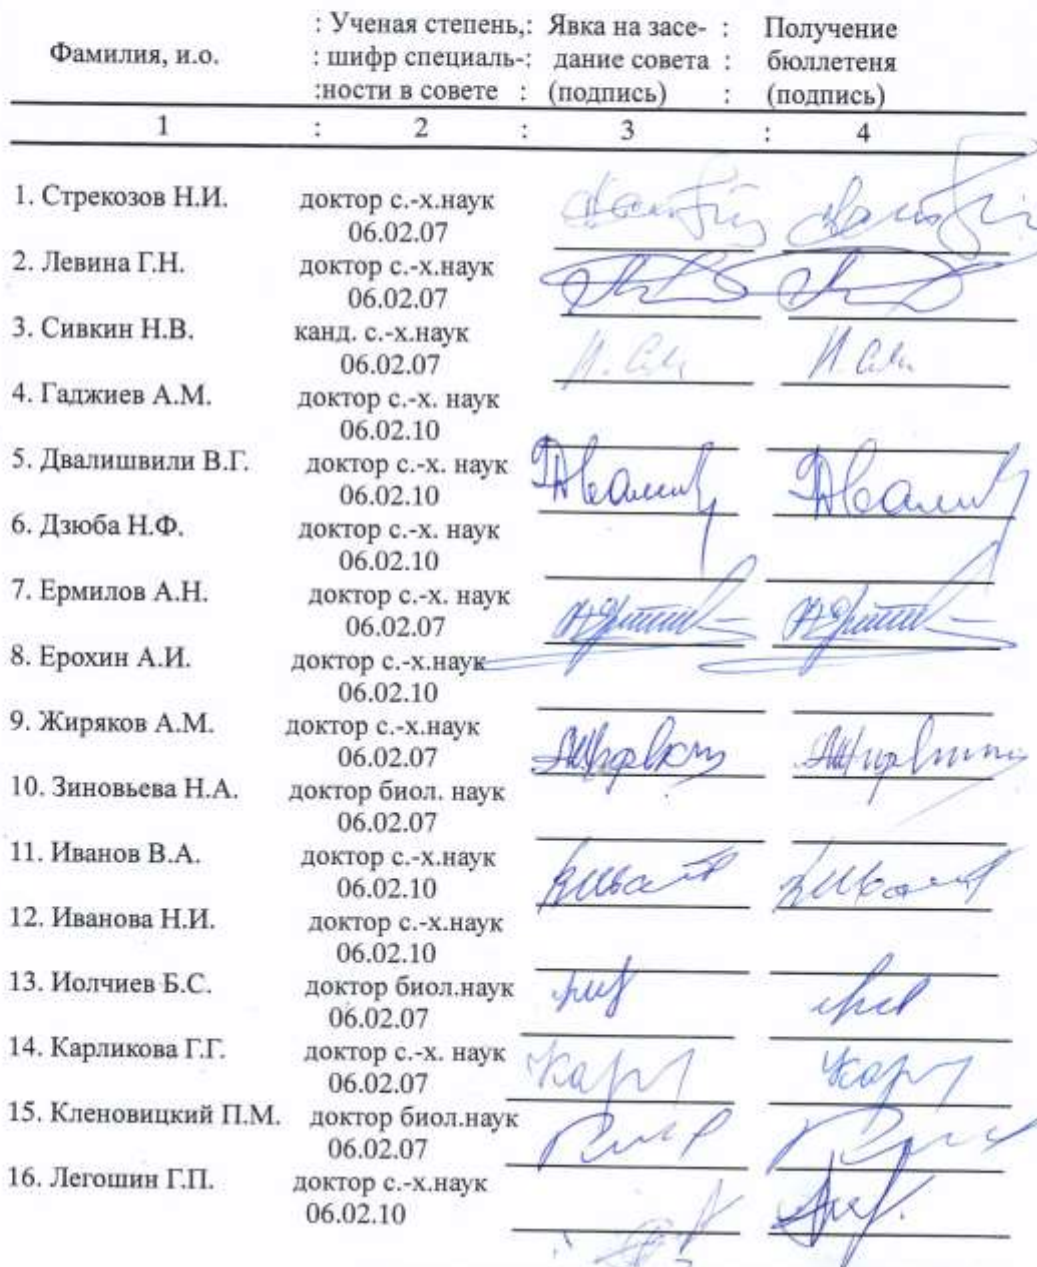 : Ученая степень,: Явка на засе- : Получение
Фамилия, и.о. : шифр специаль-: дание совета : бюллетеня
:ности в совете : (подпись) : (подпись)
1 : 2 : 3 : 4
1. Стрекозов Н.И. доктор с.-х.наук
06.02.07
2. Левина Г.Н. доктор с.-х.наук
06.02.07
3. Сивкин Н.В. канд. с.-х.наук
06.02.07
4. Гаджиев А.М. доктор с.-х. наук
06.02.10
5. Двалишвили В.Г. доктор с.-х. наук
06.02.10
6. Дзюба Н.Ф. доктор с.-х. наук
06.02.10
7. Ермилов А.Н. доктор с.-х. наук
06.02.07
8. Ерохин А.И. доктор с.-х.наук
06.02.10
9. Жиряков А.М. доктор с.-х.наук
06.02.07
10. Зиновьева Н.А. доктор биол. наук
06.02.07
11. Иванов В.А. доктор с.-х.наук
06.02.10
12. Иванова Н.И. доктор с.-х.наук
06.02.10
13. Иолчиев Б.С. доктор биол.наук
06.02.07
14. Карликова Г.Г. доктор с.-х. наук
06.02.07
15. Кленовицкий П.М. доктор биол.наук
06.02.07
16. Легошин Г.П. доктор с.-х.наук
06.02.10